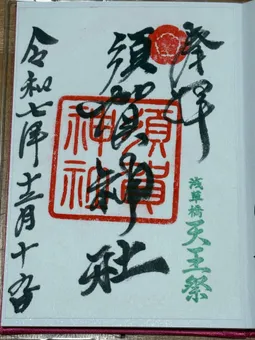 奉拝
須賀神社
須賀神社
浅草橋
天王祭
令和七年十二月十五日